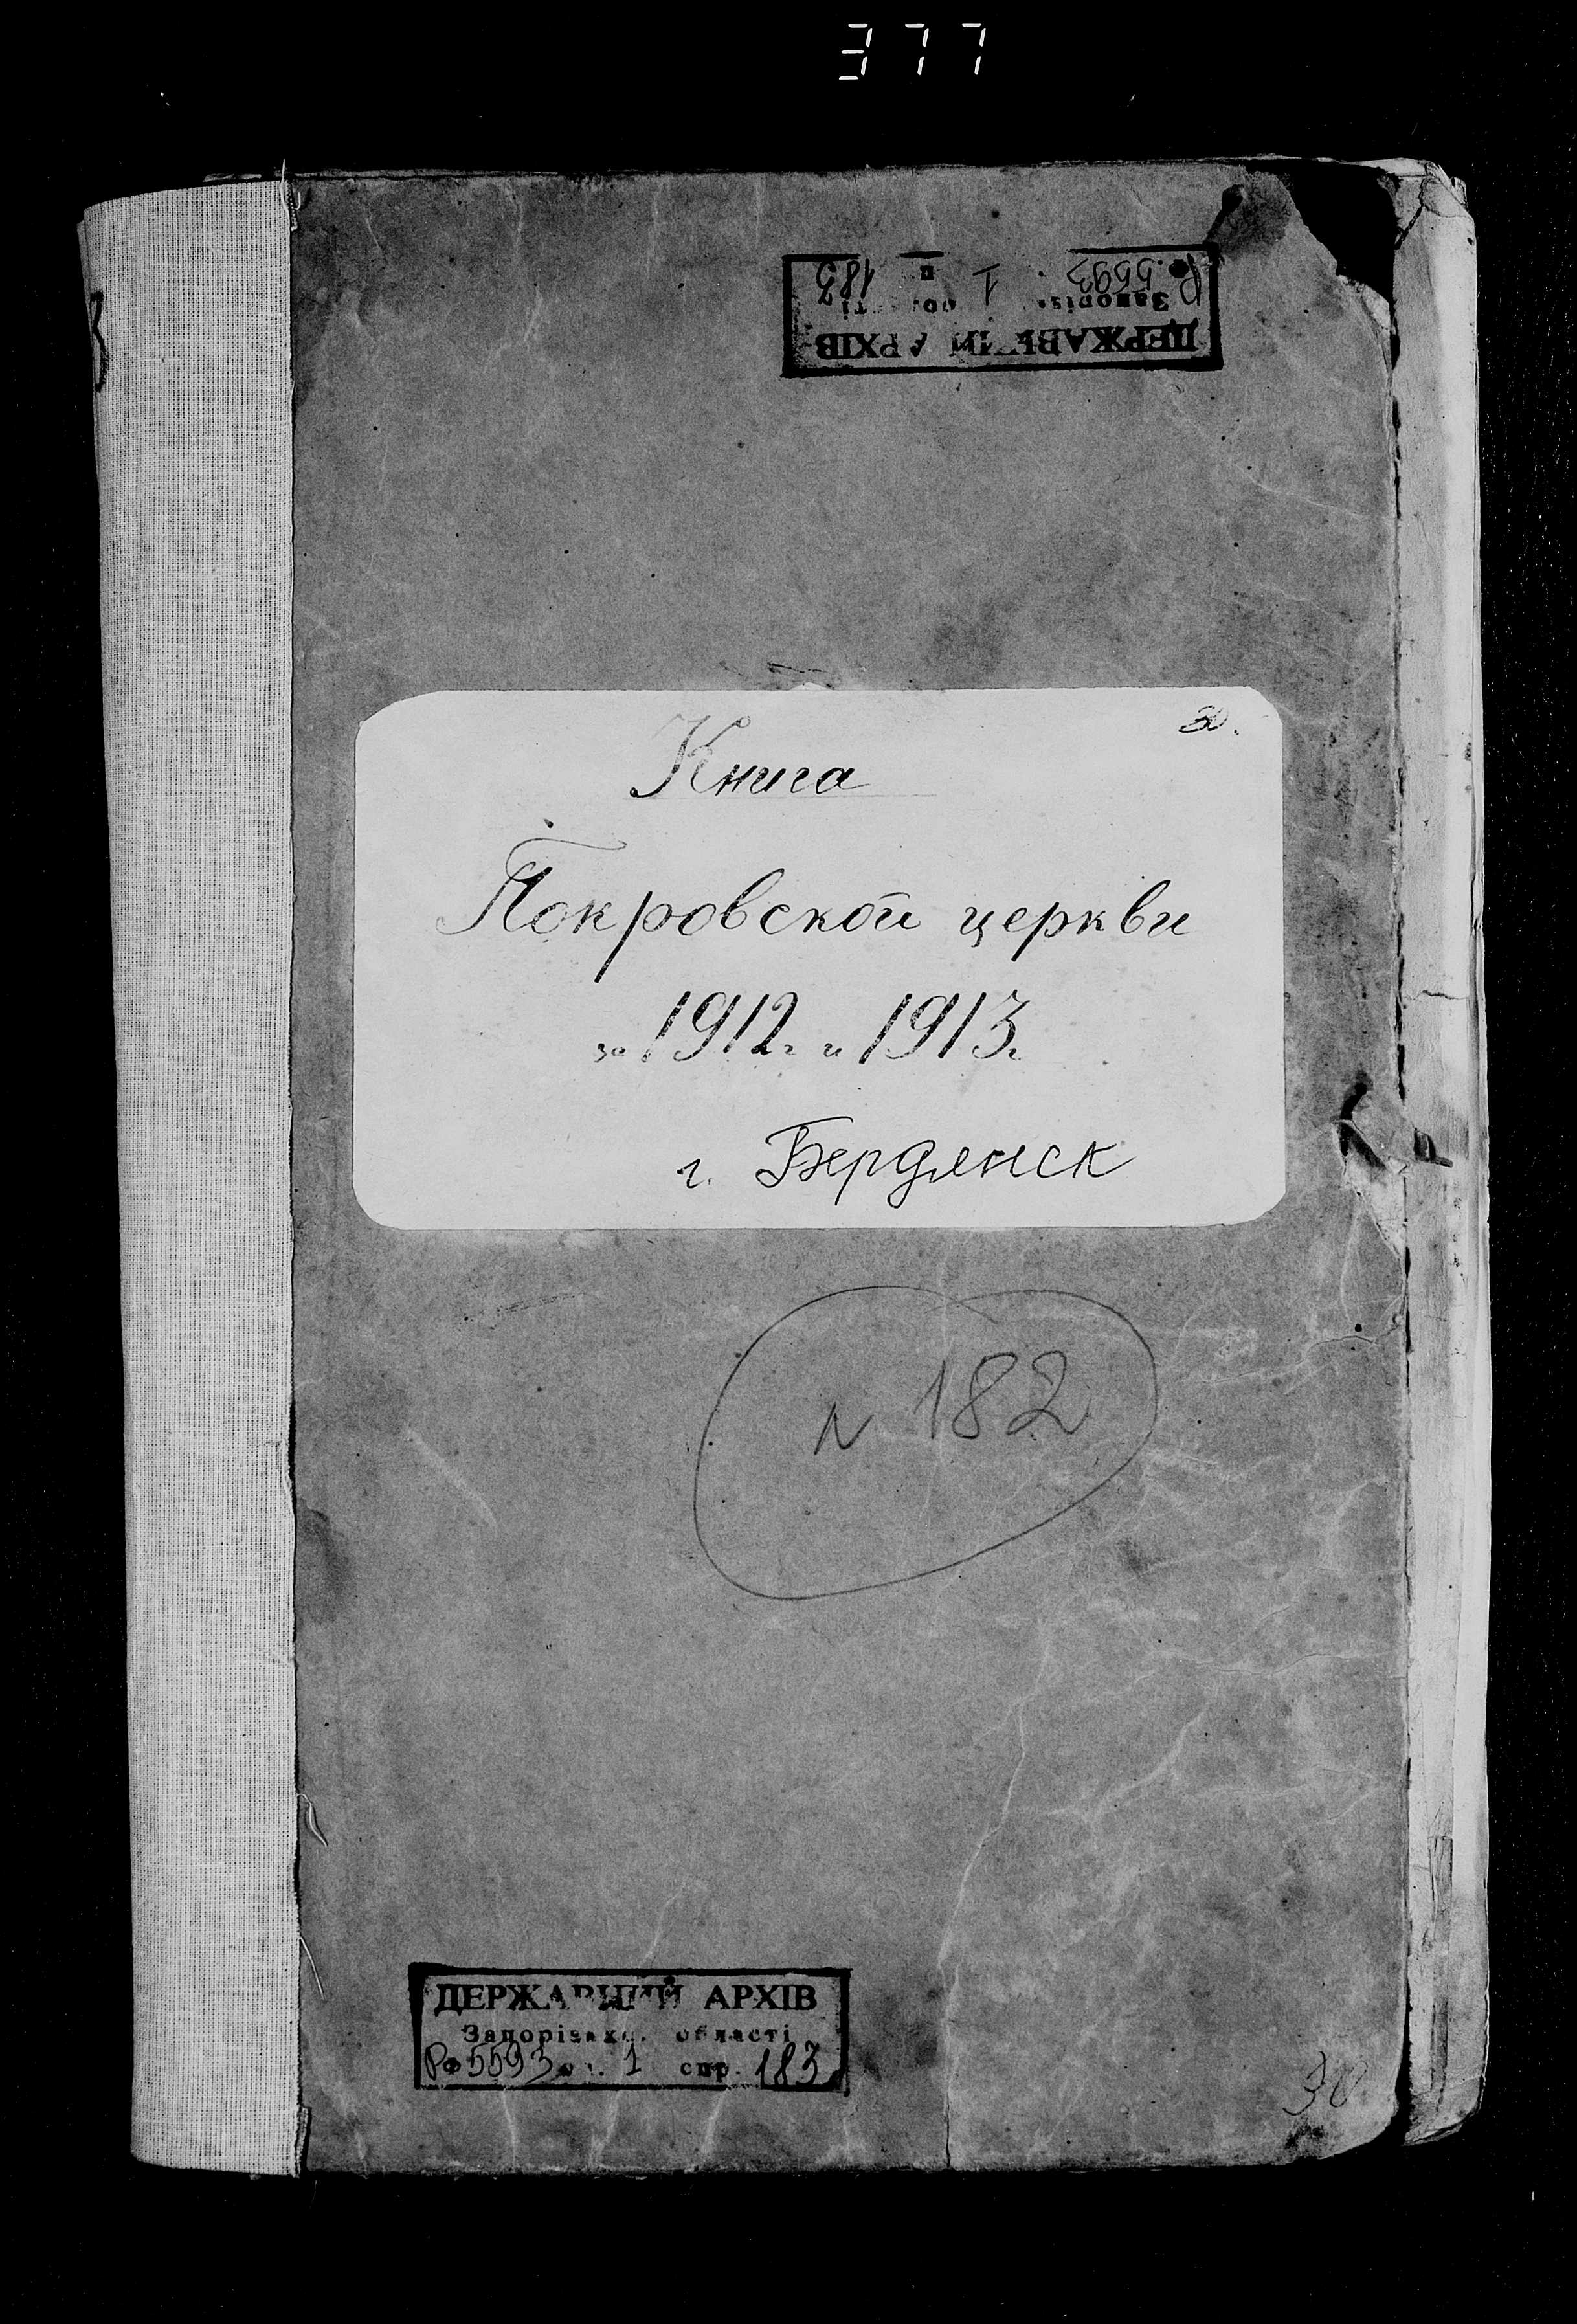 377
ДЕРЖАВНИЙ АРХІВ
Запорізької області
Р. 5593 1 183
30.
Книга
Покровской церкви
за 1912 г. и 1913 г.
г. Бердянск
N 182
ДЕРЖАВНИЙ АРХІВ
Запорізької області
РФ 5593 оп. 1 спр. 183
30